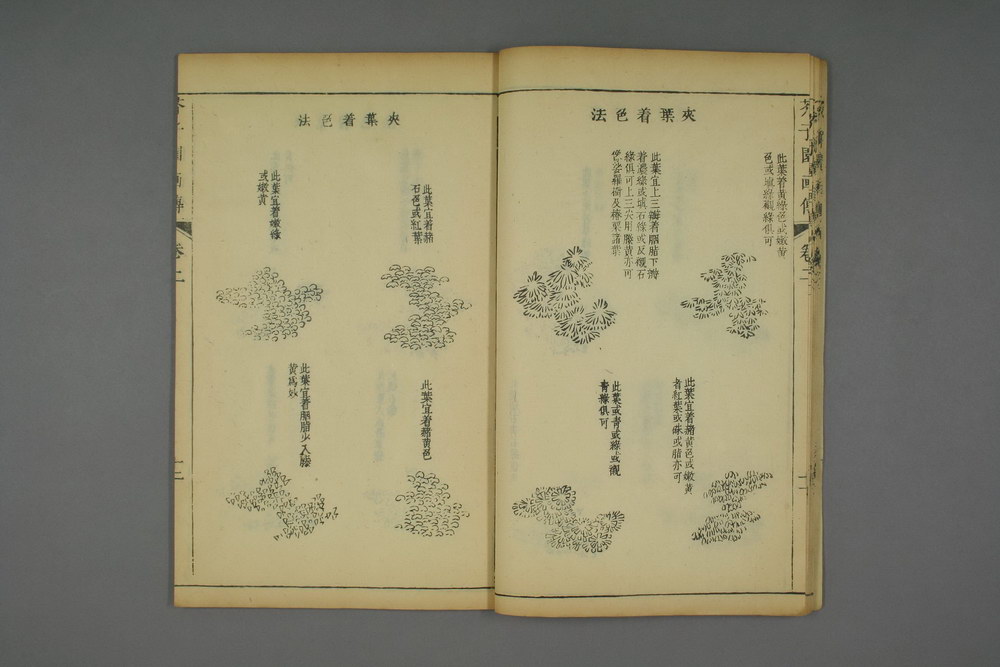 夾葉着色法
此葉着黃綠色或嫩黃
色或填綠襯綠俱可
此葉宜上三瓣着胭脂下瓣
着濃綠或填石綠或反襯石
綠俱可上三尖用籐黃亦可
此葉宜着赭黃色或嫩黃
者紅葉或硃或脂亦可
此葉或青或綠或襯
青綠俱可
夾葉着色法
此葉宜着赭
石色或紅葉
此葉宜着嫩綠
或嫩黃
此葉宜着赭黃色
此葉宜着胭脂少入籐
黃爲妙
芥子園畫傳
卷二